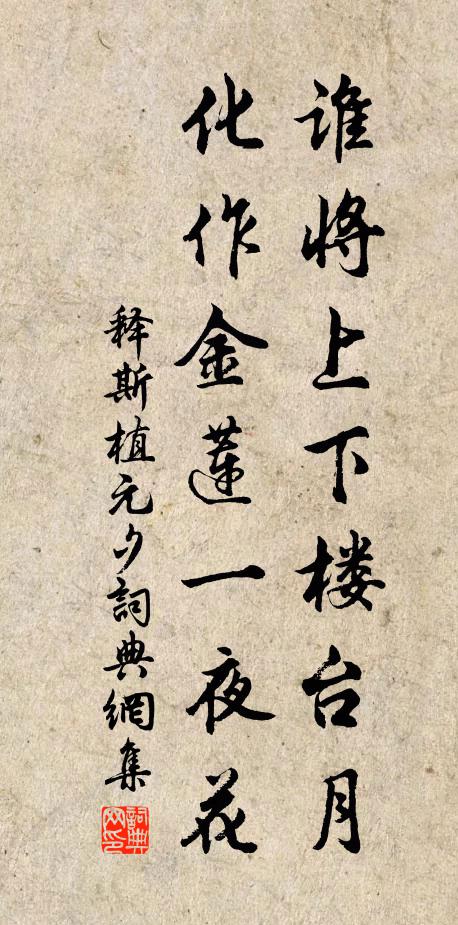 谁将上下楼台月
化作金莲一夜花
释斯植元夕詞典網集
詞典网印